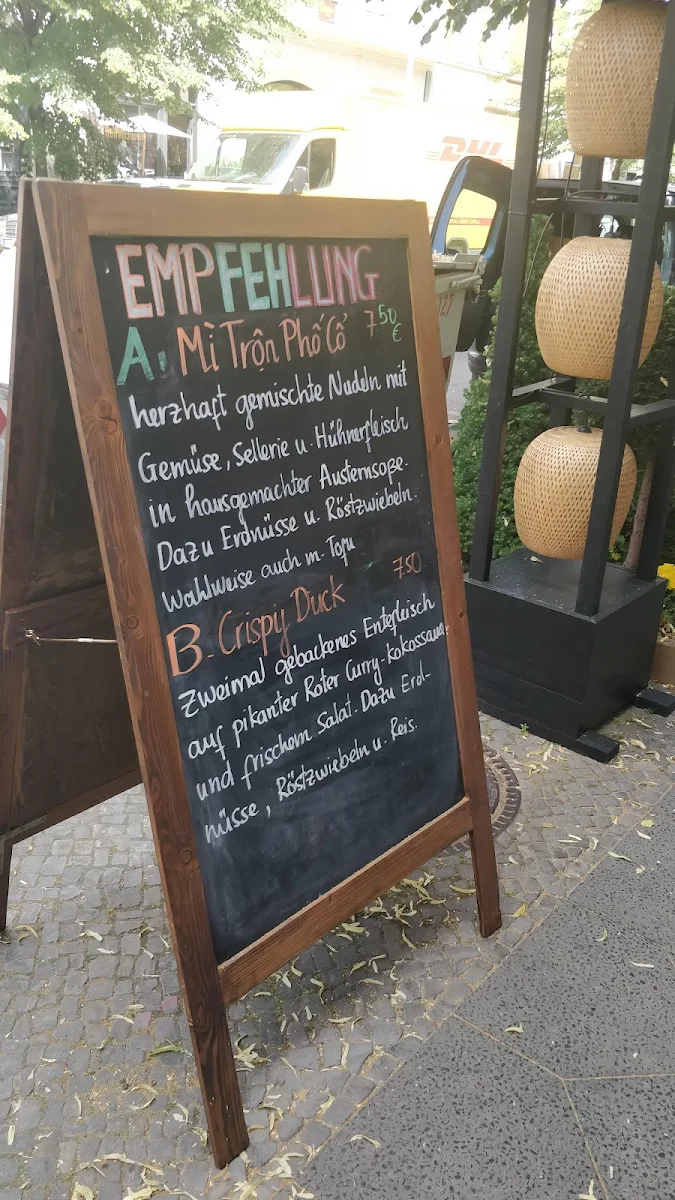 EMPFEHLUNG
A, Mì Trộn Phố Cổ 7 50 €
herzhaft gemischte Nudeln mit
Gemüse, Sellerie u. Hühnerfleisch
in hausgemachter Austernsoße.
Dazu Erdnüsse u. Röstzwiebeln.
Wahlweise auch m. Tofu
B. Crispy Duck 7.50
Zweimal gebackenes Entefleisch
auf pikanter Roter Curry-Kokossauce
und frischem Salat. Dazu Erd-
nüsse, Röstzwiebeln u. Reis.
DHL